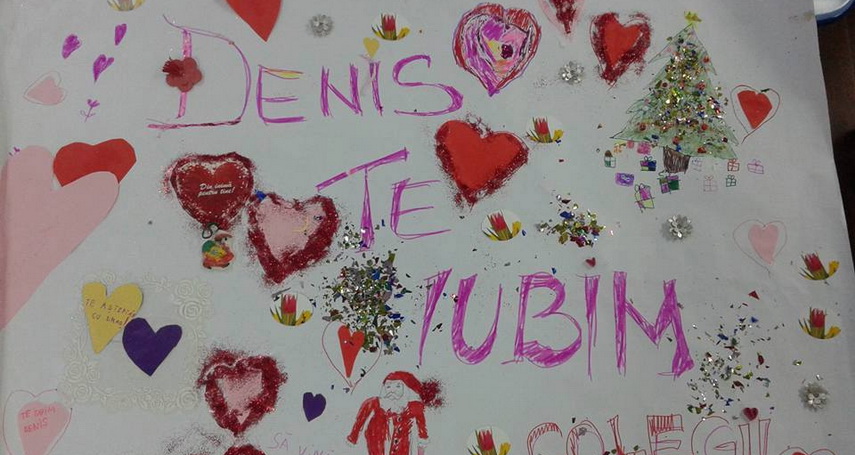 DENIS
TE
IUBIM
Din inimă
pentru tine!
TE AȘTEPTĂM
TE IUBIM
DENIS
COLEGII